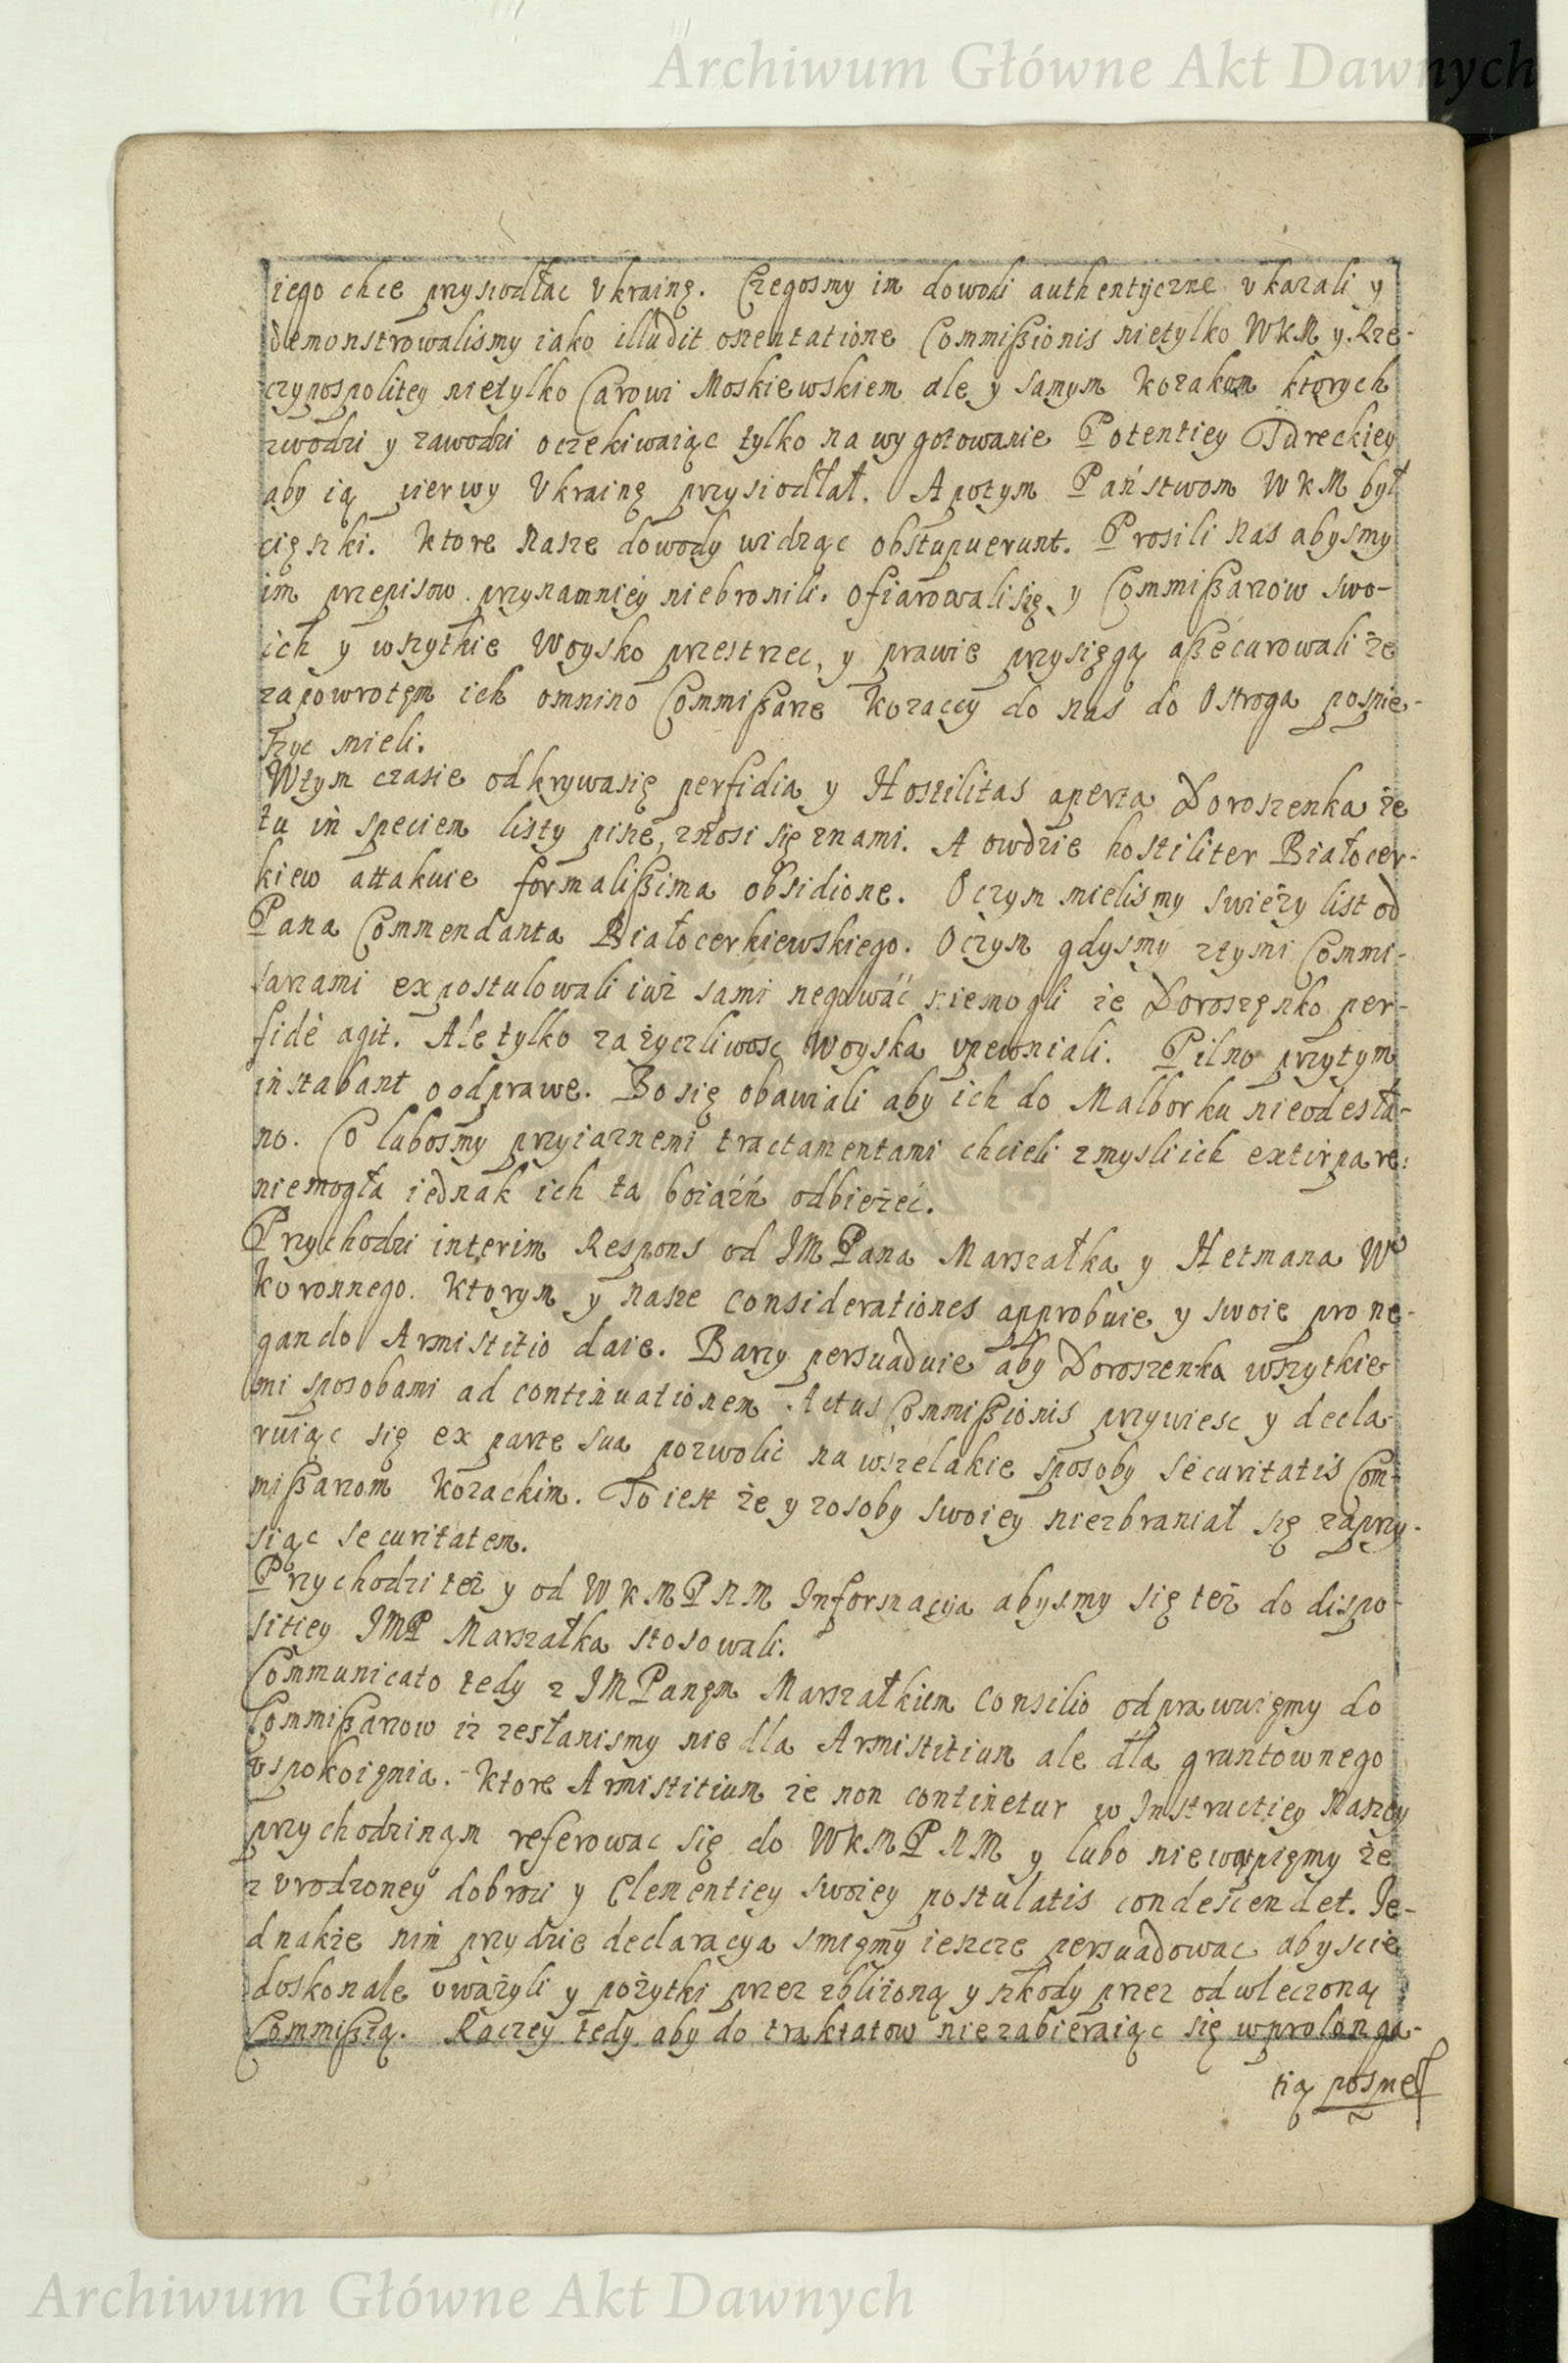 Archiwum Główne Akt Dawnych
iego chce przysiodłac Vkrainę. Czegosmy im dowodi authentyczne vkazali y
demonstrowalismy iako illudit ostentatione Commißionis nietylko WKM y Rze-
czypospolitey nietylko Carowi Moskiewskiem ale y samym kozakom ktorych
zwodzi y zawodzi oczekiwaiąc tylko na wygotowanie Potentiey Tureckiey
aby ią pierwy Vkrainę przysiodłał. A potym Państwom WKM był
cięszki. Ktore Nasze dowody widząc obstupuerunt. Prosili nas abysmy
im przepisow przynamniey niebronili. Ofiarowali się y Commißarzow swo-
ich y wszytkie Woysko przestrzec, y prawie przysięgą aßecurowali że
zapowrotem ich omnino Commißarze Kozaccy do nas do Ostroga pospie-
szyc mieli.
Wtym czasie odkrywasię perfidia y Hostilitas aperta Doroszenka że
tu in speciem listy pisze, znosi się znami. A owdzie hostiliter Białocer-
kiew attakuie formalißima obsidione. Oczym mielismy swieży list od
Pana Commendanta Białocerkiewskiego. Oczym gdysmy ztymi Commi-
sarzami expostulowali iuż sami negować niemogli że Doroszęnko per-
fidè agit. Ale tylko zażyczliwosc Woyska vpewniali. Pilno przytym
instabant o odprawe. Bo się obawiali aby ich do Malborku nieodesła-
no. Co lubosmy przyiaznemi tractamentami chcieli zmysli ich extirpare:
niemogła iednak ich ta boiaźń odbieżeć.
Przychodzi interim Respons od JMPana Marszałka y Hetmana Wº
koronnego. Ktorym y nasze considerationes approbuie y swoie pro ne-
gando Armistitio daie. Barzy persuaduie aby Doroszenka wszytkie-
mi sposobami ad continuationem Actus Commißionis przywiesc y decla-
ruiąc się ex parte sua pozwolic na wszelakie sposoby securitatis Com-
mißarzom Kozackim. To iest że y zosoby swoiey niezbraniał się zaprzy-
siąc securitatem.
Przychodzi też y od WKMPNM Informacyia abysmy się też do dispo-
sitiey JMP Marszałka stosowali.
Communicato tedy z JMPanęm Marszałkiem Consilio odprawuięmy do
Commißarzow iz zesłanismy nie dla Armistitium ale dla gruntownego
vspokoięnia. Ktore Armistitium że non continetur w Instructiey Naszey
przychodzi nąm referowac się do WKMPNM y lubo niewątpięmy że
z vrodzoney dobroci y Clementiey swoiey postulatis condescendet. Je-
dnakże nim przydzie declaracya smięmy ieszcze persuadowac abyscie
doskonale vważyli y pożytki przez zbliżoną y szkody przez odwleczoną
Commißią. Raczey tedy aby do traktatow niezabieraiąc się wprolonga-
tią pospie
Archiwum Główne Akt Dawnych